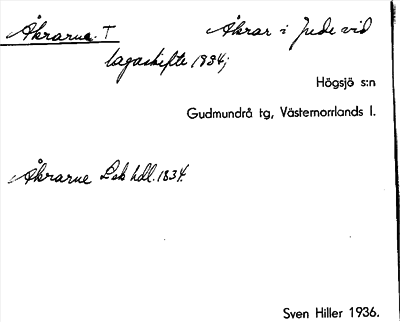 Åkrarne. T Åkrar i Jude vid
lagaskifte 1834;
Högsjö s:n
Gudmundrå tg, Västernorrlands l.
Åkrarne Lsk hdl. 1834.
Sven Hiller 1936.